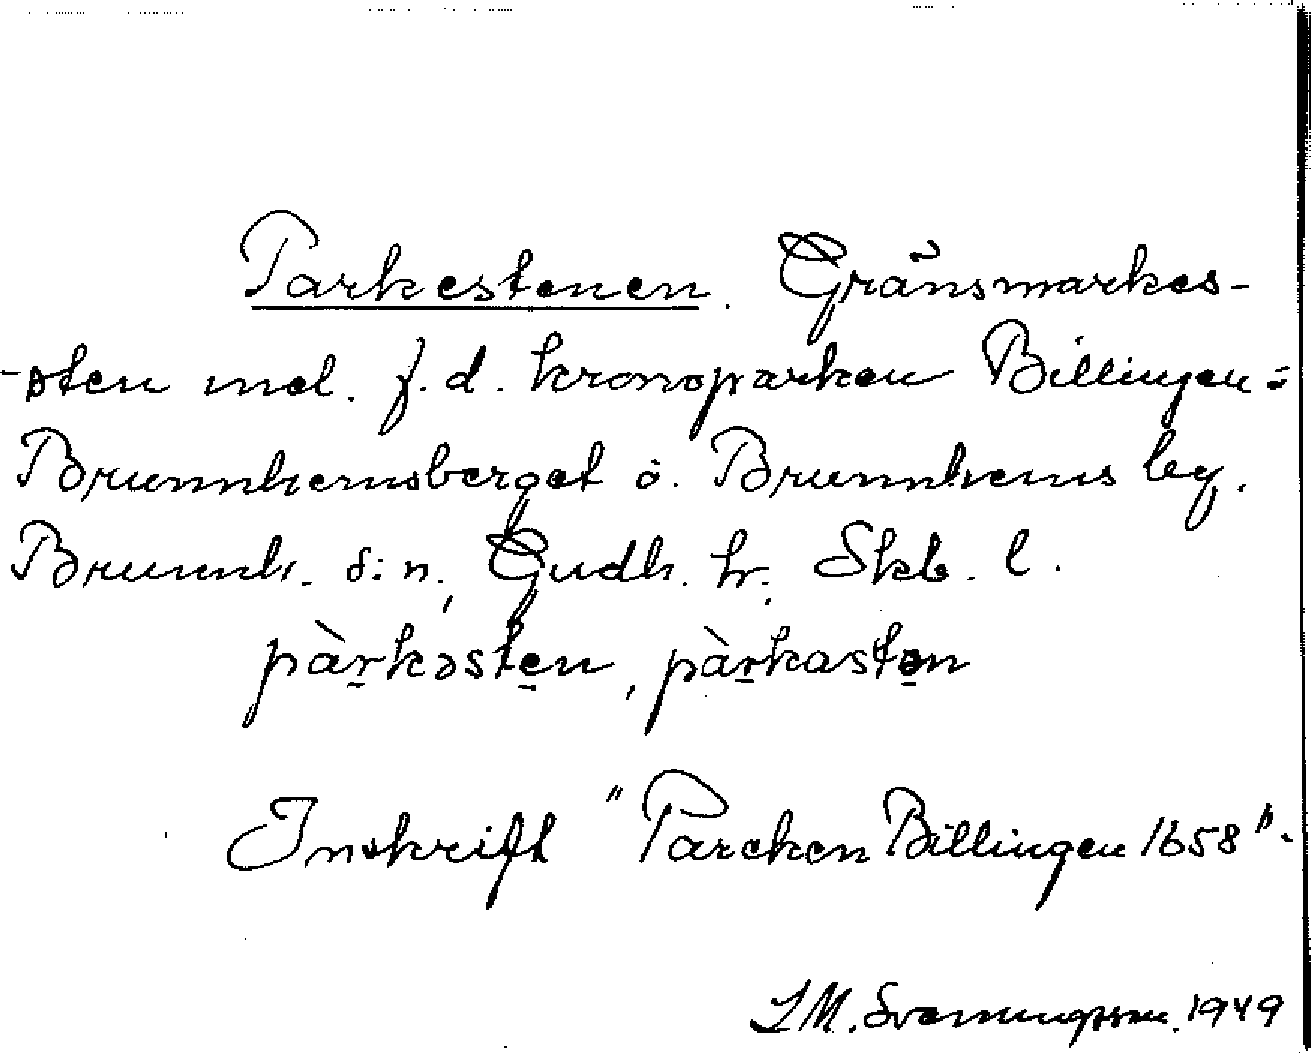 Parkestenen. Gränsmarkes-
-sten mel. f.d. kronoparken Billingen =
Brunnhemsberget o. Brunnhems by.
Brunnh. s:n, Gudh. hr. Skb. l.
pàrkəsten, pàrkastən
Inskrift "Parcken Billingen 1658".
L.M. Svenningsson. 1949